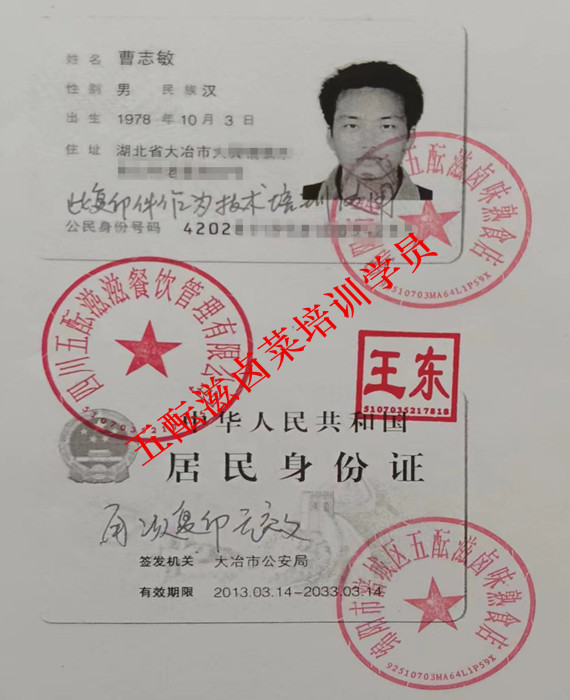 姓名 曹志敏
性别 男 民族 汉
出生 1978 年 10 月 3 日
住址 湖北省大冶市
此复印件作为技术培训使用
公民身份号码 4202
绵阳市涪城区五酝滋卤味熟食店
92510703MA64L1P59X
四川五酝滋滋餐饮管理有限公司
五酝滋卤菜培训学员
王东
5107035217818
中华人民共和国
居民身份证
再次复印无效
签发机关 大冶市公安局
有效期限 2013.03.14-2033.03.14
绵阳市涪城区五酝滋卤味熟食店
92510703MA64L1P59X